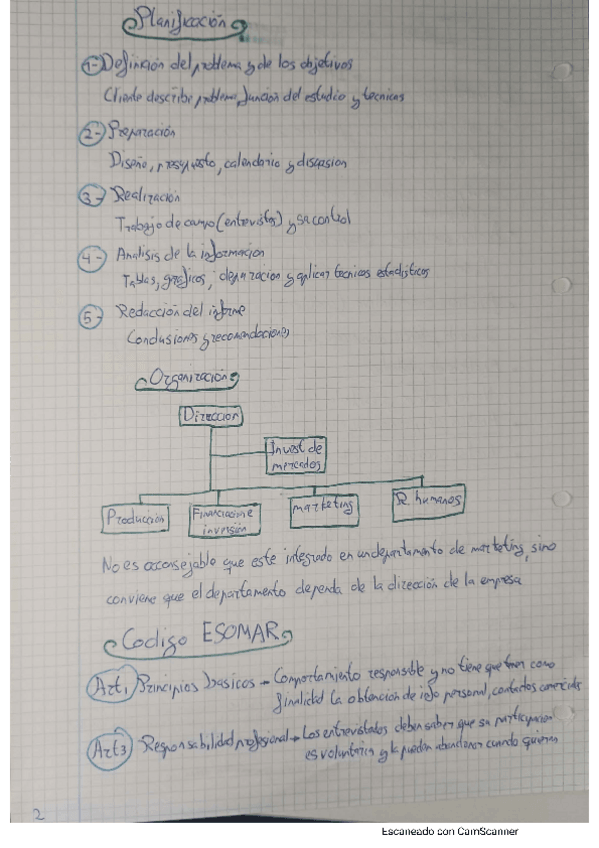 Planificación
1- Definición del problema y de los objetivos
Cliente describe problema, función del estudio y técnicas
2- Preparación
Diseño, presupuesto, calendario y discusion
3- Realización
Trabajo de campo (entrevistas) y su control
4- Analisis de la informacion
Tablas, gráficos, depuracion y aplicar tecnicas estadisticas
5- Redacción del informe
Conclusiones y recomendaciones
Organización
Dirección
Invest de
mercados
Producción
Financiacion e
inversión
marketing
R. humanos
No es aconsejable que este integrado en un departamento de marketing, sino
conviene que el departamento dependa de la dirección de la empresa
Codigo ESOMAR
Art1 Principios basicos → Comportamiento responsable y no tiene que tener como
finalidad la obtención de info personal, contactos comerciales
Art3 Responsabilidad profesional → Los entrevistados deben saber que su participacion
es voluntaria y la pueden abandonar cuando quieran
2
Escaneado con CamScanner